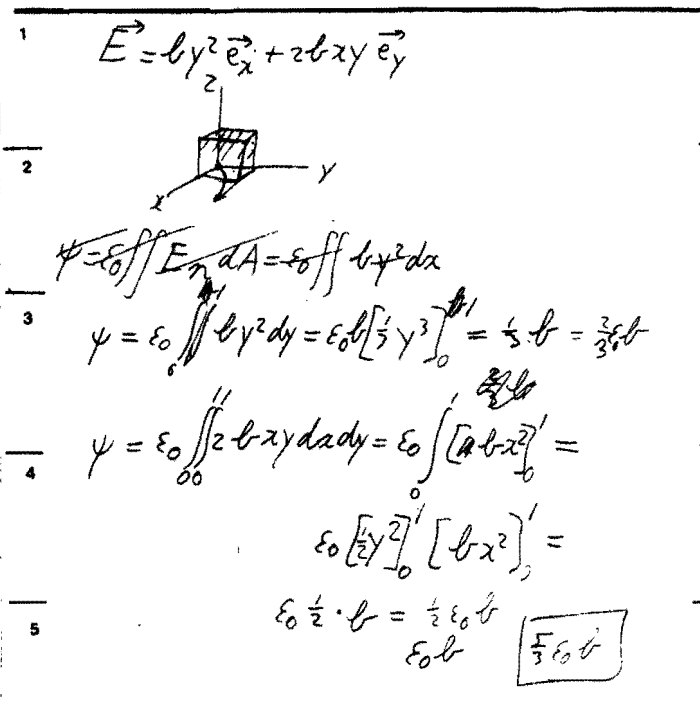 1
E⃗ = by² e⃗ₓ + 2bxy e⃗ᵧ
z
2
y
x
ψ = ε₀ ∬ Eₙ dA = ε₀ ∬ by² dx
3
ψ = ε₀ ∬ by² dy = ε₀b[⅓ y³]₀ = ⅓ · b = ⅔ε₀b
4
ψ = ε₀ ∫₀¹∫₀¹ 2bxy dx dy = ε₀ ∫₀¹ [bx²]₀¹ =
ε₀ [½y²]₀¹ [bx²]₀¹ =
5
ε₀ ½ · b = ½ ε₀ b
ε₀ b
5/3 ε₀ b